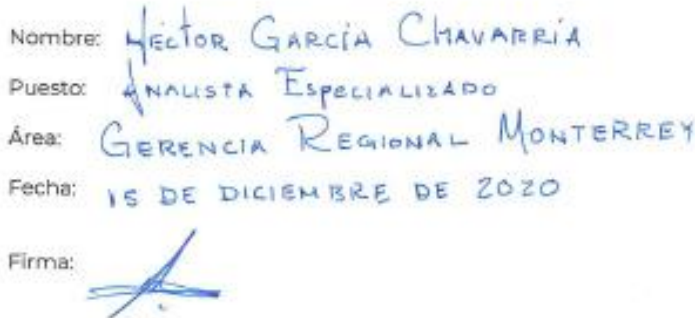 Nombre: Héctor García Chavarría
Puesto: Analista Especializado
Área: Gerencia Regional Monterrey
Fecha: 15 DE DICIEMBRE DE 2020
Firma: